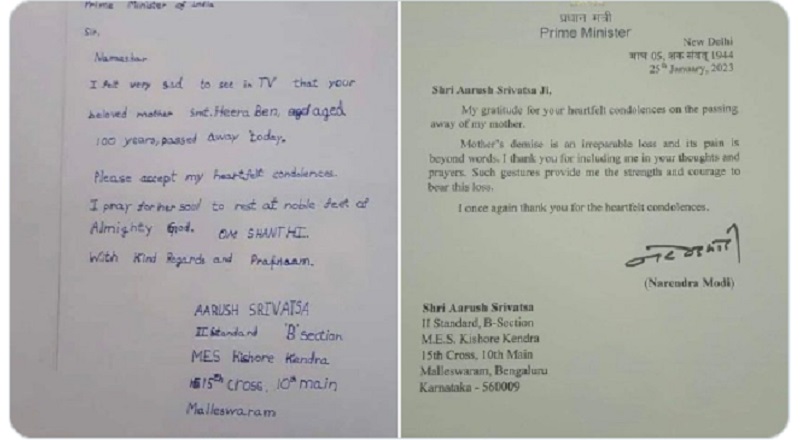 Prime Minister of India
Sir,
Namaskar
I felt very sad to see in TV that your
beloved mother Smt. Heera Ben, aged
100 years, passed away today.
Please accept my heartfelt condolences.
I pray for her soul to rest at noble feet of
Almighty God. OM SHANTHI.
With Kind Regards and Pranaam.
AARUSH SRIVATSA
II Standard 'B' section
MES Kishore Kendra
15th cross, 10th main
Malleswaram
प्रधान मंत्री
Prime Minister
New Delhi
माघ 05, शक संवत् 1944
25th January, 2023
Shri Aarush Srivatsa Ji,
My gratitude for your heartfelt condolences on the passing
away of my mother.
Mother's demise is an irreparable loss and its pain is
beyond words. I thank you for including me in your thoughts and
prayers. Such gestures provide me the strength and courage to
bear this loss.
I once again thank you for the heartfelt condolences.
(Narendra Modi)
Shri Aarush Srivatsa
II Standard, B-Section
M.E.S. Kishore Kendra
15th Cross, 10th Main
Malleswaram, Bengaluru
Karnataka - 560009